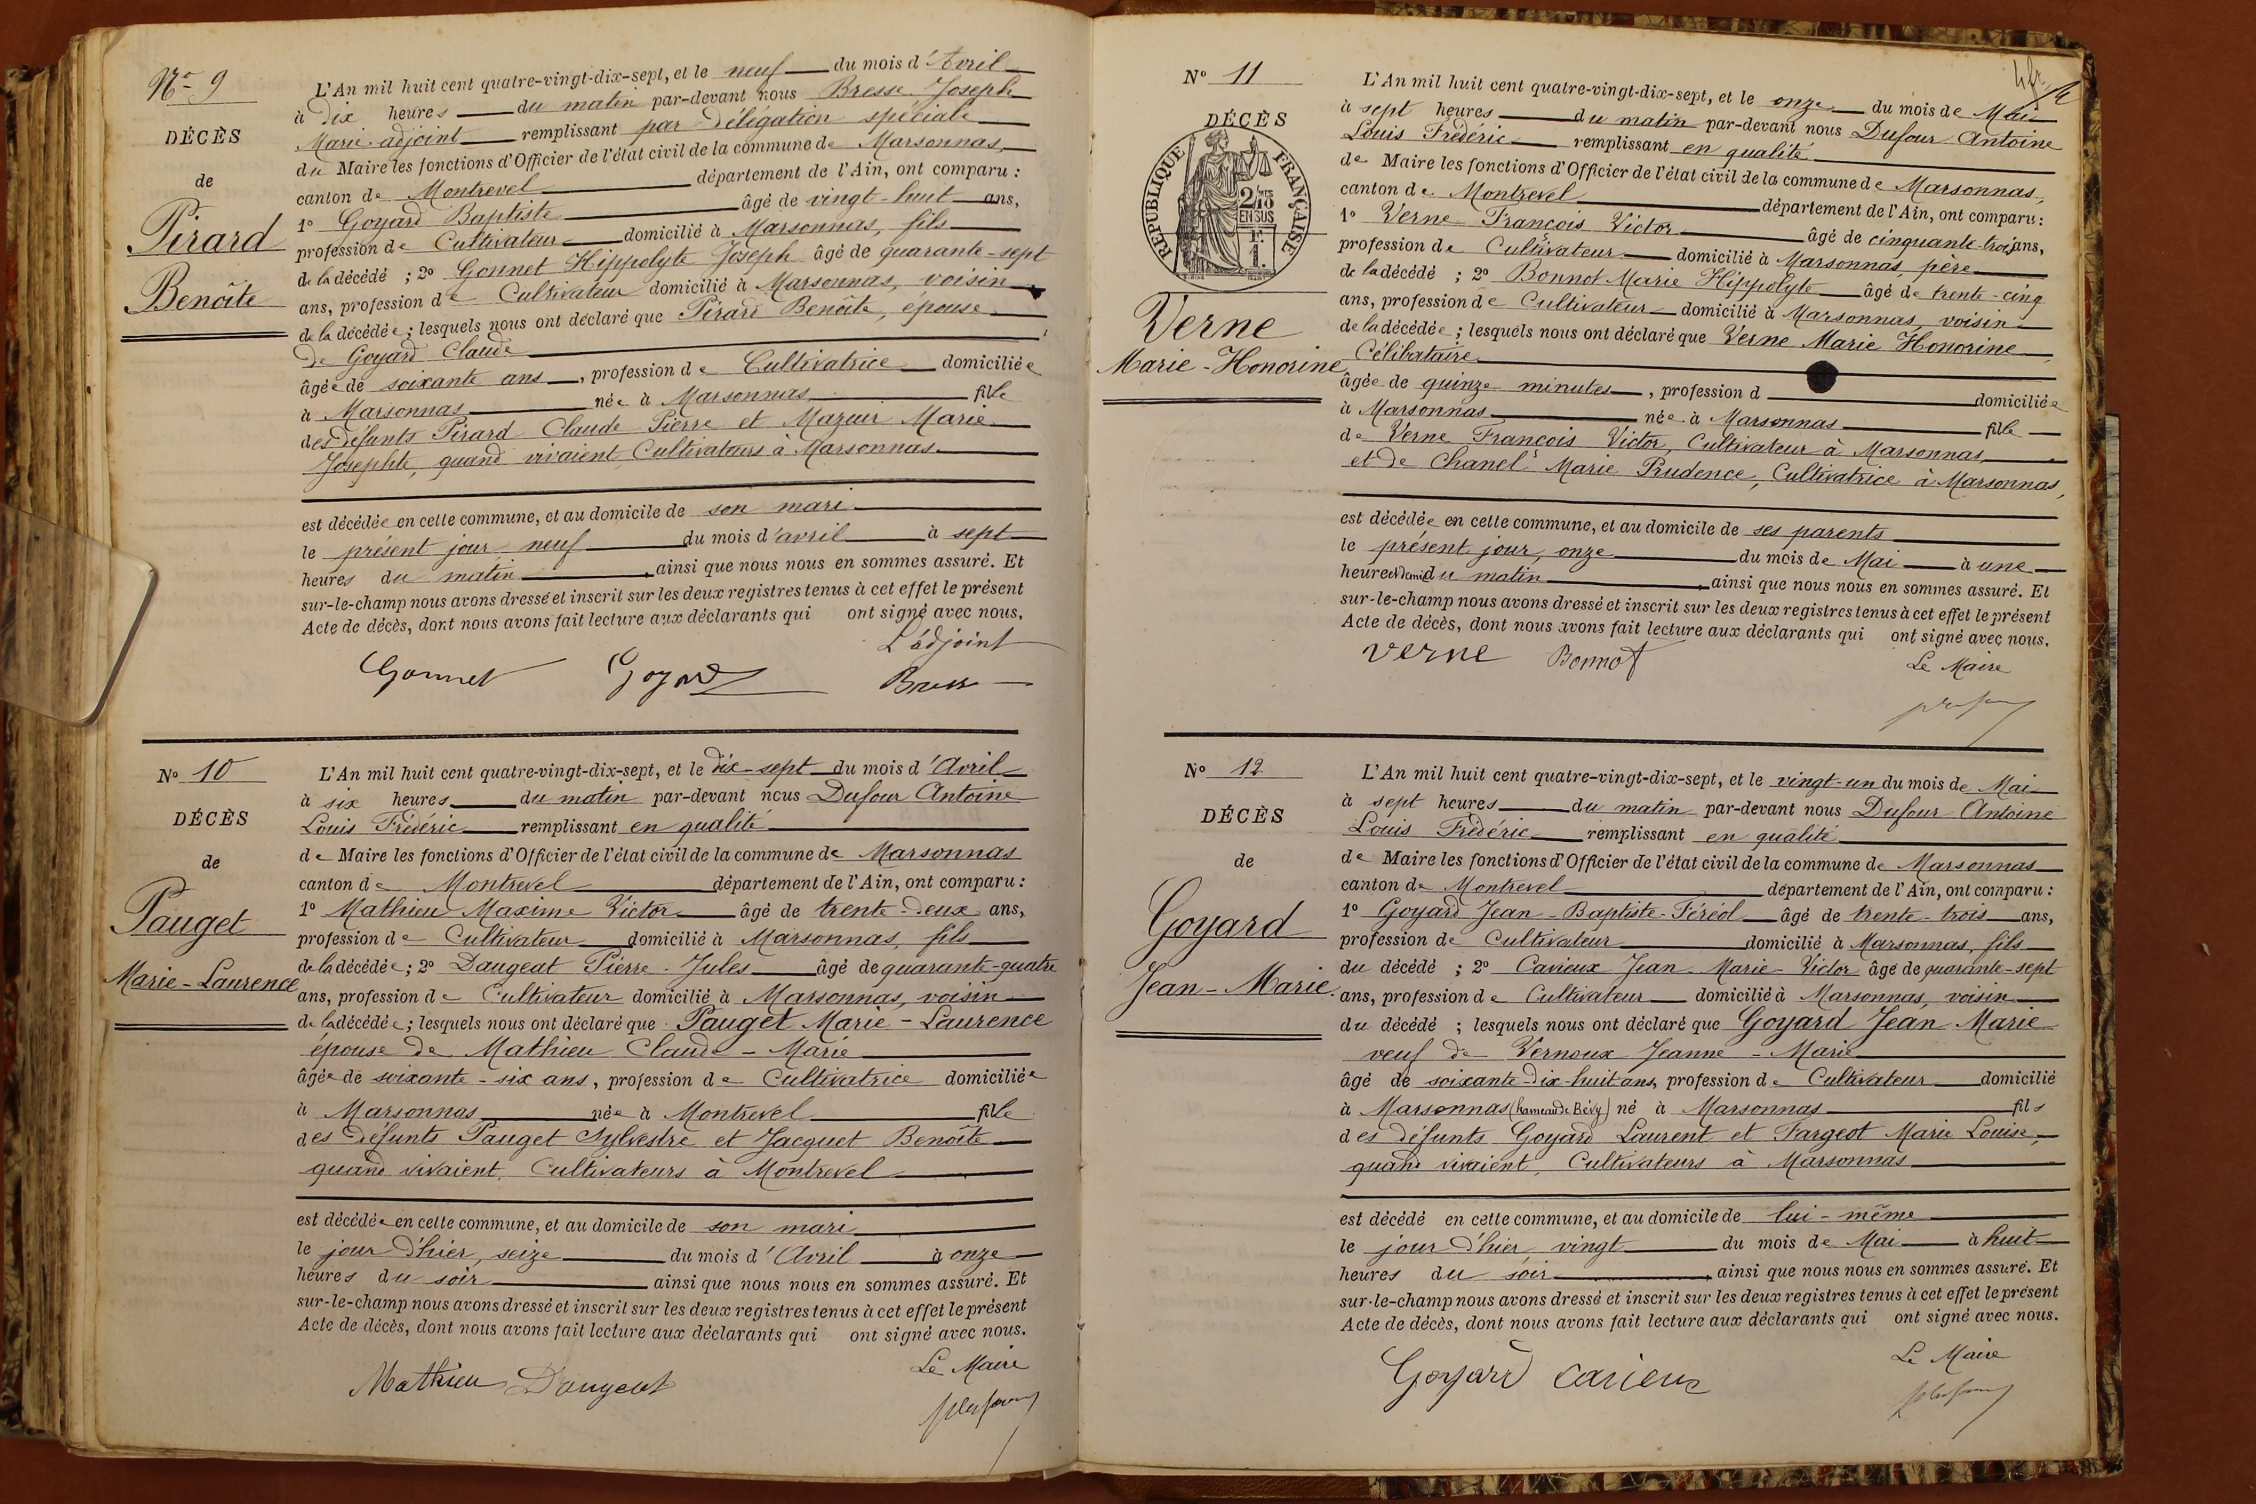 No 9
DÉCÈS
de
Pirard
Benoîte
L'An mil huit cent quatre-vingt-dix-sept, et le neuf du mois d'Avril
à dix heures du matin par-devant nous Bresse Joseph
Marie adjoint remplissant par délégation spéciale
du Maire les fonctions d'Officier de l'état civil de la commune de Marsonnas,
canton de Montrevel département de l'Ain, ont comparu :
1o Goyard Baptiste âgé de vingt-huit ans,
profession de Cultivateur domicilié à Marsonnas, fils
de la décédé ; 2o Gonnet Hippolyte Joseph âgé de quarante-sept
ans, profession de Cultivateur domicilié à Marsonnas, voisin
de la décédée ; lesquels nous ont déclaré que Pirard Benoîte, épouse
de Goyard Claude
âgée de soixante ans, profession de Cultivatrice domiciliée
à Marsonnas née à Marsonnas fille
des défunts Pirard Claude Pierre et Mazuir Marie
Josephte, quand vivaient Cultivateurs à Marsonnas
est décédée en cette commune, et au domicile de son mari
le présent jour neuf du mois d'avril à sept
heures du matin, ainsi que nous nous en sommes assuré. Et
sur-le-champ nous avons dressé et inscrit sur les deux registres tenus à cet effet le présent
Acte de décès, dont nous avons fait lecture aux déclarants qui ont signé avec nous.
L'adjoint
Gonnet Goyard Bresse
No 10
DÉCÈS
de
Pauget
Marie-Laurence
L'An mil huit cent quatre-vingt-dix-sept, et le dix-sept du mois d'Avril
à six heures du matin par-devant nous Dufour Antoine
Louis Frédéric remplissant en qualité
de Maire les fonctions d'Officier de l'état civil de la commune de Marsonnas
canton de Montrevel département de l'Ain, ont comparu :
1o Mathieu Maxime Victor âgé de trente-deux ans,
profession de Cultivateur domicilié à Marsonnas, fils
de la décédée ; 2o Daugeat Pierre-Jules âgé de quarante-quatre
ans, profession de Cultivateur domicilié à Marsonnas, voisin
de la décédée ; lesquels nous ont déclaré que Pauget Marie-Laurence
épouse de Mathieu Claude-Marie
âgée de soixante-six ans, profession de Cultivatrice domiciliée
à Marsonnas née à Montrevel fille
des défunts Pauget Sylvestre et Jacquet Benoîte
quand vivaient, Cultivateurs à Montrevel
est décédée en cette commune, et au domicile de son mari
le jour d'hier, seize du mois d'Avril à onze
heures du soir ainsi que nous nous en sommes assuré. Et
sur-le-champ nous avons dressé et inscrit sur les deux registres tenus à cet effet le présent
Acte de décès, dont nous avons fait lecture aux déclarants qui ont signé avec nous.
Le Maire
Mathieu Daugeat
No 11
DÉCÈS
RÉPUBLIQUE FRANÇAISE
2/10
EN SUS
Verne
Marie-Honorine
L'An mil huit cent quatre-vingt-dix-sept, et le onze du mois de Mai
à sept heures du matin par-devant nous Dufour Antoine
Louis Frédéric remplissant en qualité
de Maire les fonctions d'Officier de l'état civil de la commune de Marsonnas,
canton de Montrevel département de l'Ain, ont comparu :
1o Verne François Victor âgé de cinquante-trois ans,
profession de Cultivateur domicilié à Marsonnas, père
de la décédé ; 2o Bonnot Marie Hippolyte âgé de trente-cinq
ans, profession de Cultivateur domicilié à Marsonnas, voisin
de la décédée ; lesquels nous ont déclaré que Verne Marie Honorine
Célibataire
âgée de quinze minutes, profession d domiciliée
à Marsonnas née à Marsonnas fille
de Verne François Victor, Cultivateur à Marsonnas
et de Chanel Marie Prudence, Cultivatrice à Marsonnas,
est décédée en cette commune, et au domicile de ses parents
le présent jour, onze du mois de Mai à une
heure et demie du matin, ainsi que nous nous en sommes assuré. Et
sur-le-champ nous avons dressé et inscrit sur les deux registres tenus à cet effet le présent
Acte de décès, dont nous avons fait lecture aux déclarants qui ont signé avec nous.
verne Bonnot
Le Maire
No 12
DÉCÈS
de
Goyard
Jean-Marie
L'An mil huit cent quatre-vingt-dix-sept, et le vingt-un du mois de Mai
à sept heures du matin par-devant nous Dufour Antoine
Louis Frédéric remplissant en qualité
de Maire les fonctions d'Officier de l'état civil de la commune de Marsonnas
canton de Montrevel département de l'Ain, ont comparu :
1o Goyard Jean-Baptiste-Féréol âgé de trente-trois ans,
profession de Cultivateur domicilié à Marsonnas, fils
du décédé ; 2o Carieux Jean-Marie-Victor âgé de quarante-sept
ans, profession de Cultivateur domicilié à Marsonnas, voisin
du décédé ; lesquels nous ont déclaré que Goyard Jean Marie
veuf de Vernoux Jeanne-Marie
âgé de soixante-dix-huit ans, profession de Cultivateur domicilié
à Marsonnas (hameau de Bévy) né à Marsonnas fils
des défunts Goyard Laurent et Fargeot Marie Louise,
quand vivaient, Cultivateurs à Marsonnas
est décédé en cette commune, et au domicile de lui-même
le jour d'hier, vingt du mois de Mai à huit
heures du soir, ainsi que nous nous en sommes assuré. Et
sur-le-champ nous avons dressé et inscrit sur les deux registres tenus à cet effet le présent
Acte de décès, dont nous avons fait lecture aux déclarants qui ont signé avec nous.
Le Maire
Goyard Carieux